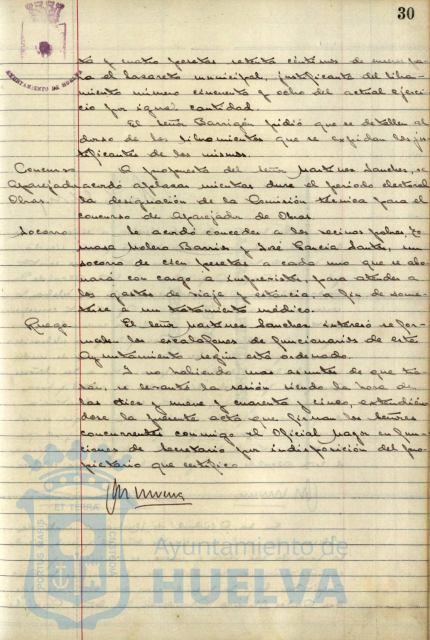 30
AYUNTAMIENTO DE HUELVA
ta y cuatro pesetas setenta céntimos de menos pa-
ra el lazareto municipal, justificante del libra-
miento número cincuenta y ocho del actual ejerci-
cio por igual cantidad.
El señor Barrigón pidió que se detallen al
dorso de los libramientos que se expidan los jus-
tificantes de los mismos.
Concurso A propuesta del señor Martínez Sánchez, se
Aparejador acordó aplazar mientras dure el período electoral
Obras. la designación de la Comisión técnica para el
concurso de Aparejador de Obras.
Socorro Se acordó conceder a los vecinos pobres, To-
masa Molero Barris y José García Santos, un
socorro de cien pesetas a cada uno que se abo-
nará con cargo a imprevistos, para atender a
los gastos de viaje y estancia, a fin de some-
terse a un tratamiento médico.
Ruego El señor Martínez Sánchez interesó se for-
malen los escalafones de funcionarios de este
Ayuntamiento según está ordenado.
Y no habiendo mas asuntos de que tra-
tar, se levantó la sesión siendo la hora de
las diez y nueve y cuarenta y cinco, extendién-
dose la presente acta que firman los señores
concurrentes conmigo el Oficial Mayor en fun-
ciones de Secretario por indisposición del pro-
pietario que certifico.
PORTUS MARIS
ET TERRAE
CUSTODIA
Ayuntamiento de
HUELVA